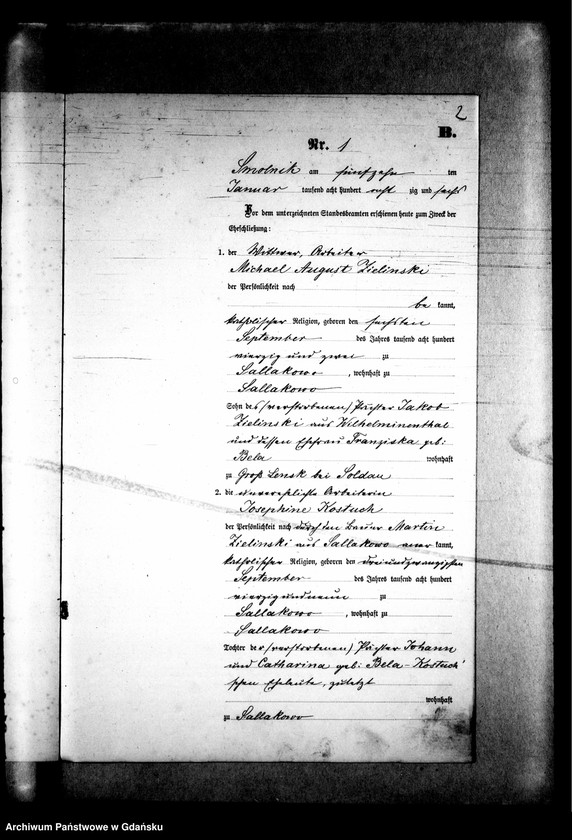 2
B.
Nr. 1
Smolnik am fünfzehn ten
Januar tausend acht hundert acht zig und sechs
Vor dem unterzeichneten Standesbeamten erschienen heute zum Zweck der
Eheschließung:
1. der Wittwer, Arbeiter
Michael August Zielinski
der Persönlichkeit nach
be kannt,
katholischer Religion, geboren den sechsten
September des Jahres tausend acht hundert
vierzig und zwei zu
Sallakowo, wohnhaft zu
Sallakowo
Sohn des (verstorbenen) Pächter Jakob
Zielinski aus Wilhelminenthal
und dessen Ehefrau Franziska geb:
Bela wohnhaft
zu Groß Lensk bei Soldau
2. die unverehelichte Arbeiterin
Josephine Kostuch
der Persönlichkeit nach durch den Martin
Zielinski aus Sallakowo aner kannt,
katholischer Religion, geboren den dreiundzwanzigsten
September des Jahres tausend acht hundert
vierzig und neun zu
Sallakowo, wohnhaft zu
Sallakowo
Tochter der (verstorbenen) Pächter Johann
und Catharina geb: Bela-Kostuch'
schen Eheleute, zuletzt
wohnhaft
zu Sallakowo
Archiwum Państwowe w Gdańsku